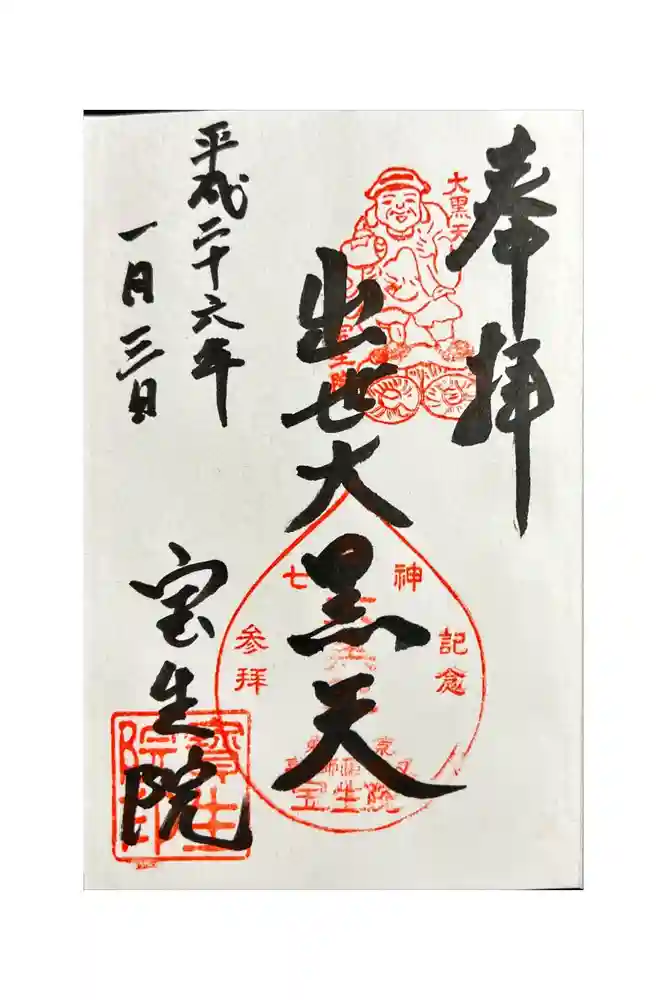 奉拝
大黒天
出世大黒天
七 神
参拝
記念
宝生院
平成二十六年
一月三日
宝生院
寳生院印